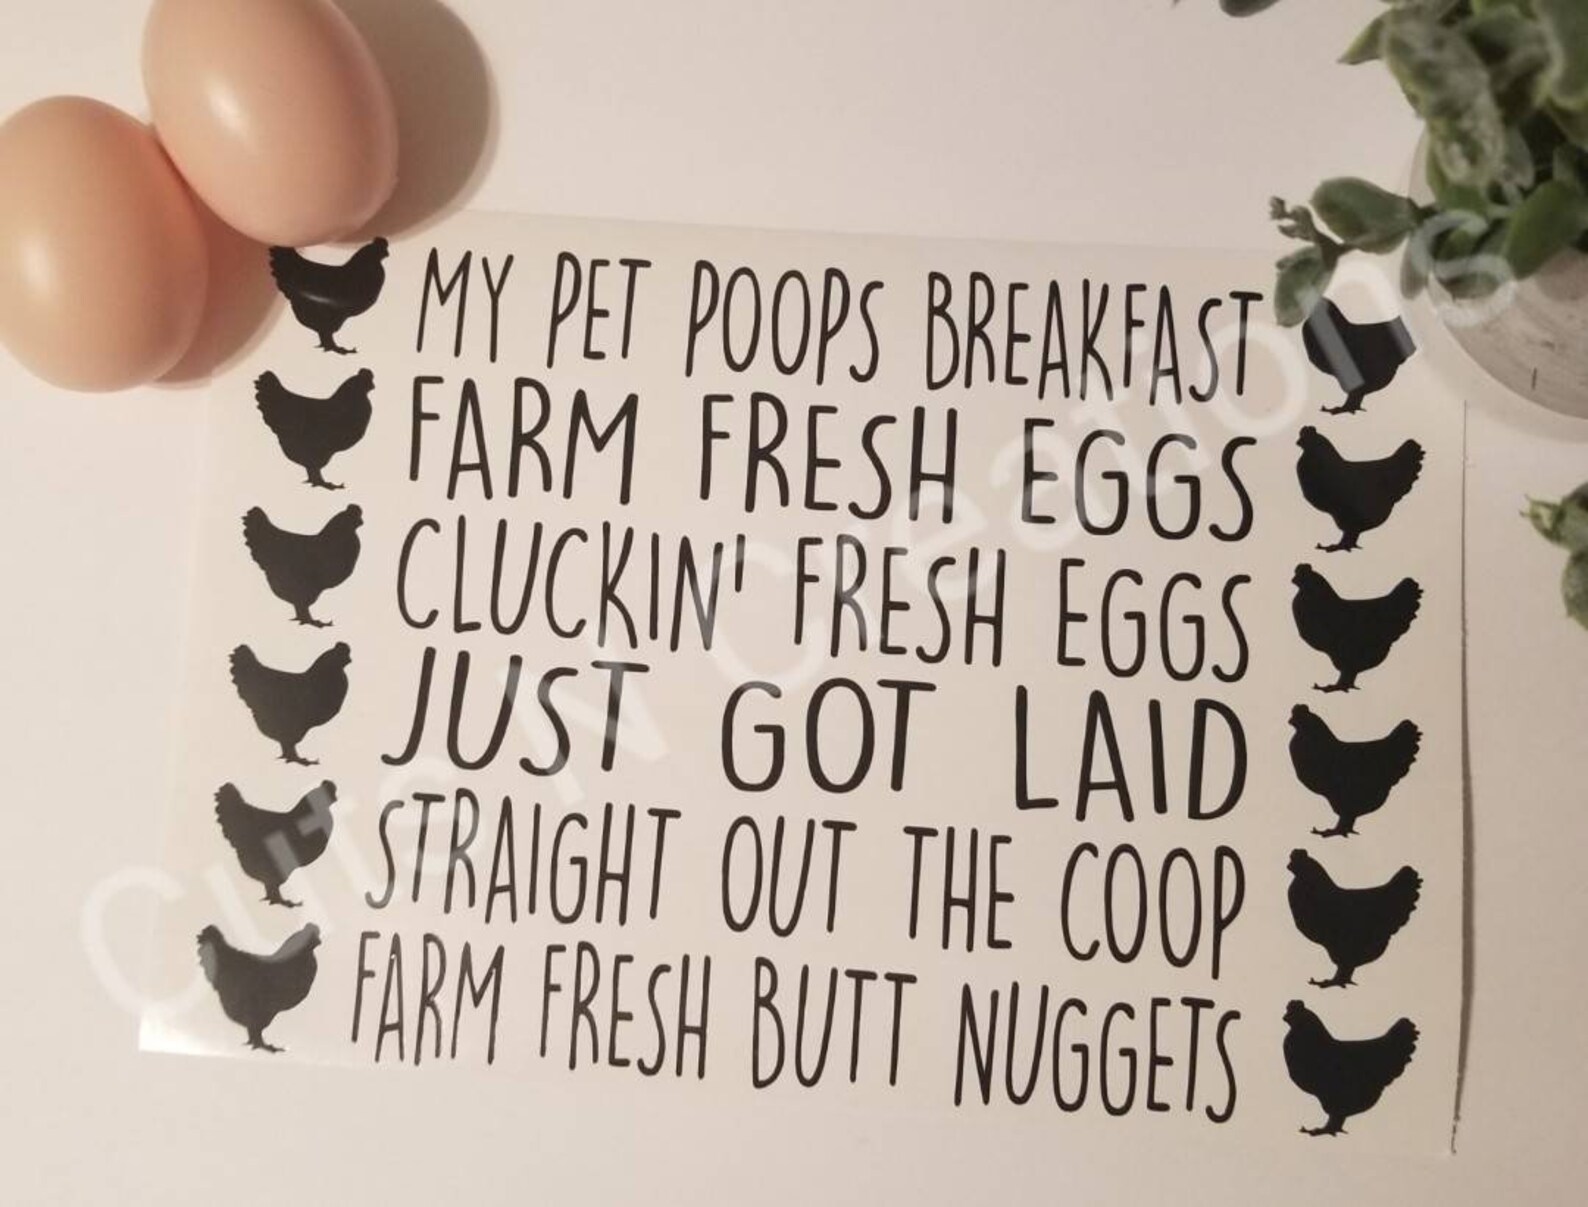 MY PET POOPS BREAKFAST
FARM FRESH EGGS
CLUCKIN' FRESH EGGS
JUST GOT LAID
STRAIGHT OUT THE COOP
FARM FRESH BUTT NUGGETS
Cuts N Creations